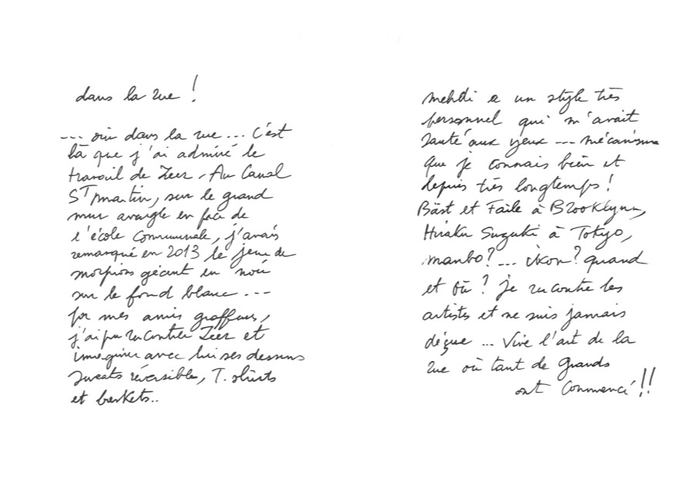 dans la rue !
--- oui dans la rue ... C'est
là que j'ai admiré le
travail de Zeer. Au Canal
St Martin, sur le grand
mur aveugle en face de
l'école Communale, j'avais
remarqué en 2013 le jeu de
morpions géant en noir
sur le fond blanc ---
par mes amis graffeurs,
j'ai pu rencontrer Zeer et
imaginer avec lui ses dessins
sweats réversible, T. shirts
et baskets..
mehdi a un style très
personnel qui m'avait
sauté aux yeux --- mécanisme
que je connais bien et
depuis très longtemps !
Bäst et Faile à Brooklynn,
Hiraku Suzuki à Tokyo,
manbo? ... ikon? quand
et où ? je rencontre les
artistes et ne suis jamais
déçue ... Vive l'art de la
rue où tant de grands
ont Commencé !!